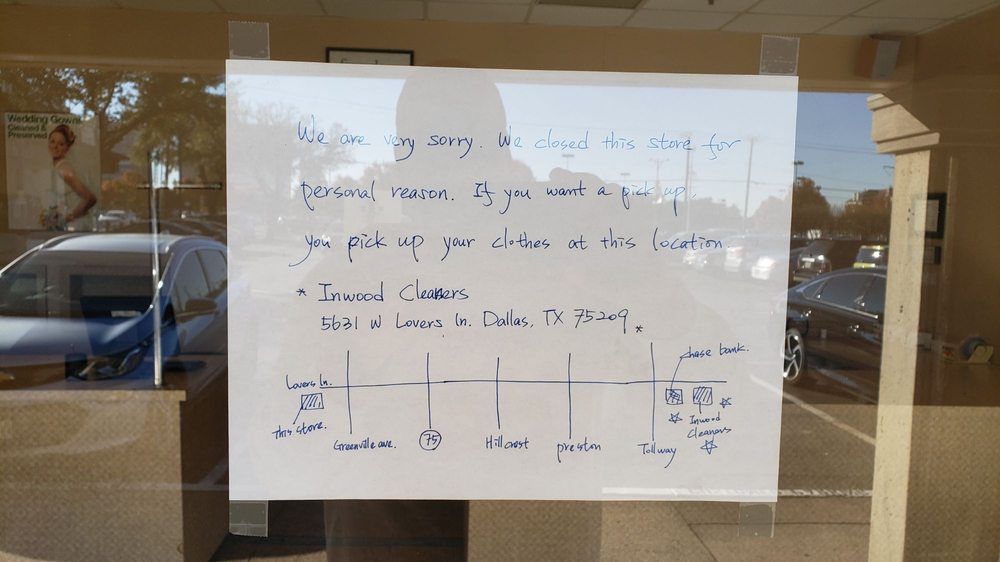 Wedding Gown
Cleaned &
Preserved
We are very sorry. We closed this store for
personal reason. If you want a pick up,
you pick up your clothes at this location.
* Inwood Cleaners
5631 W Lovers ln. Dallas, TX 75209 *
chase bank.
Lovers ln.
this store.
Greenville ave.
75
Hillcrest
preston
Tollway
Inwood
Cleaners